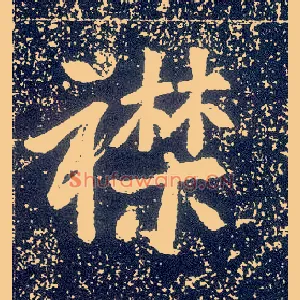 襟
Shufawang.cn